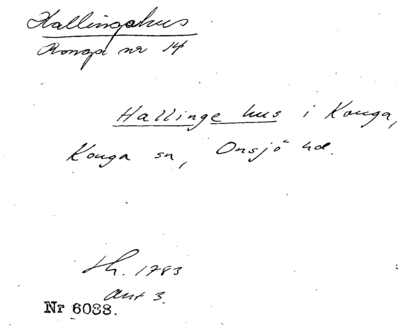 Hallingahus
Konga nr 14
Hallinge hus i Konga,
Konga sn, Onsjö hd.
Lh. 1783
ant 3.
Nr 6088.